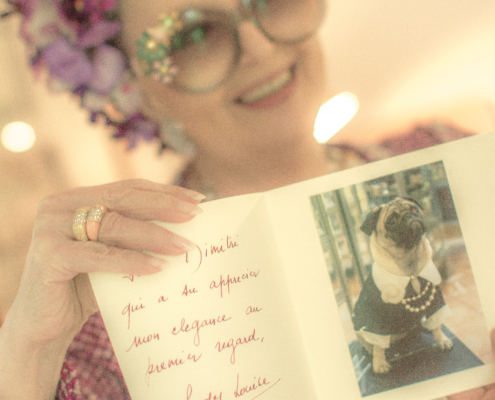 Dimitri
qui a su apprecier
mon elegance au
premier regard,
Louise